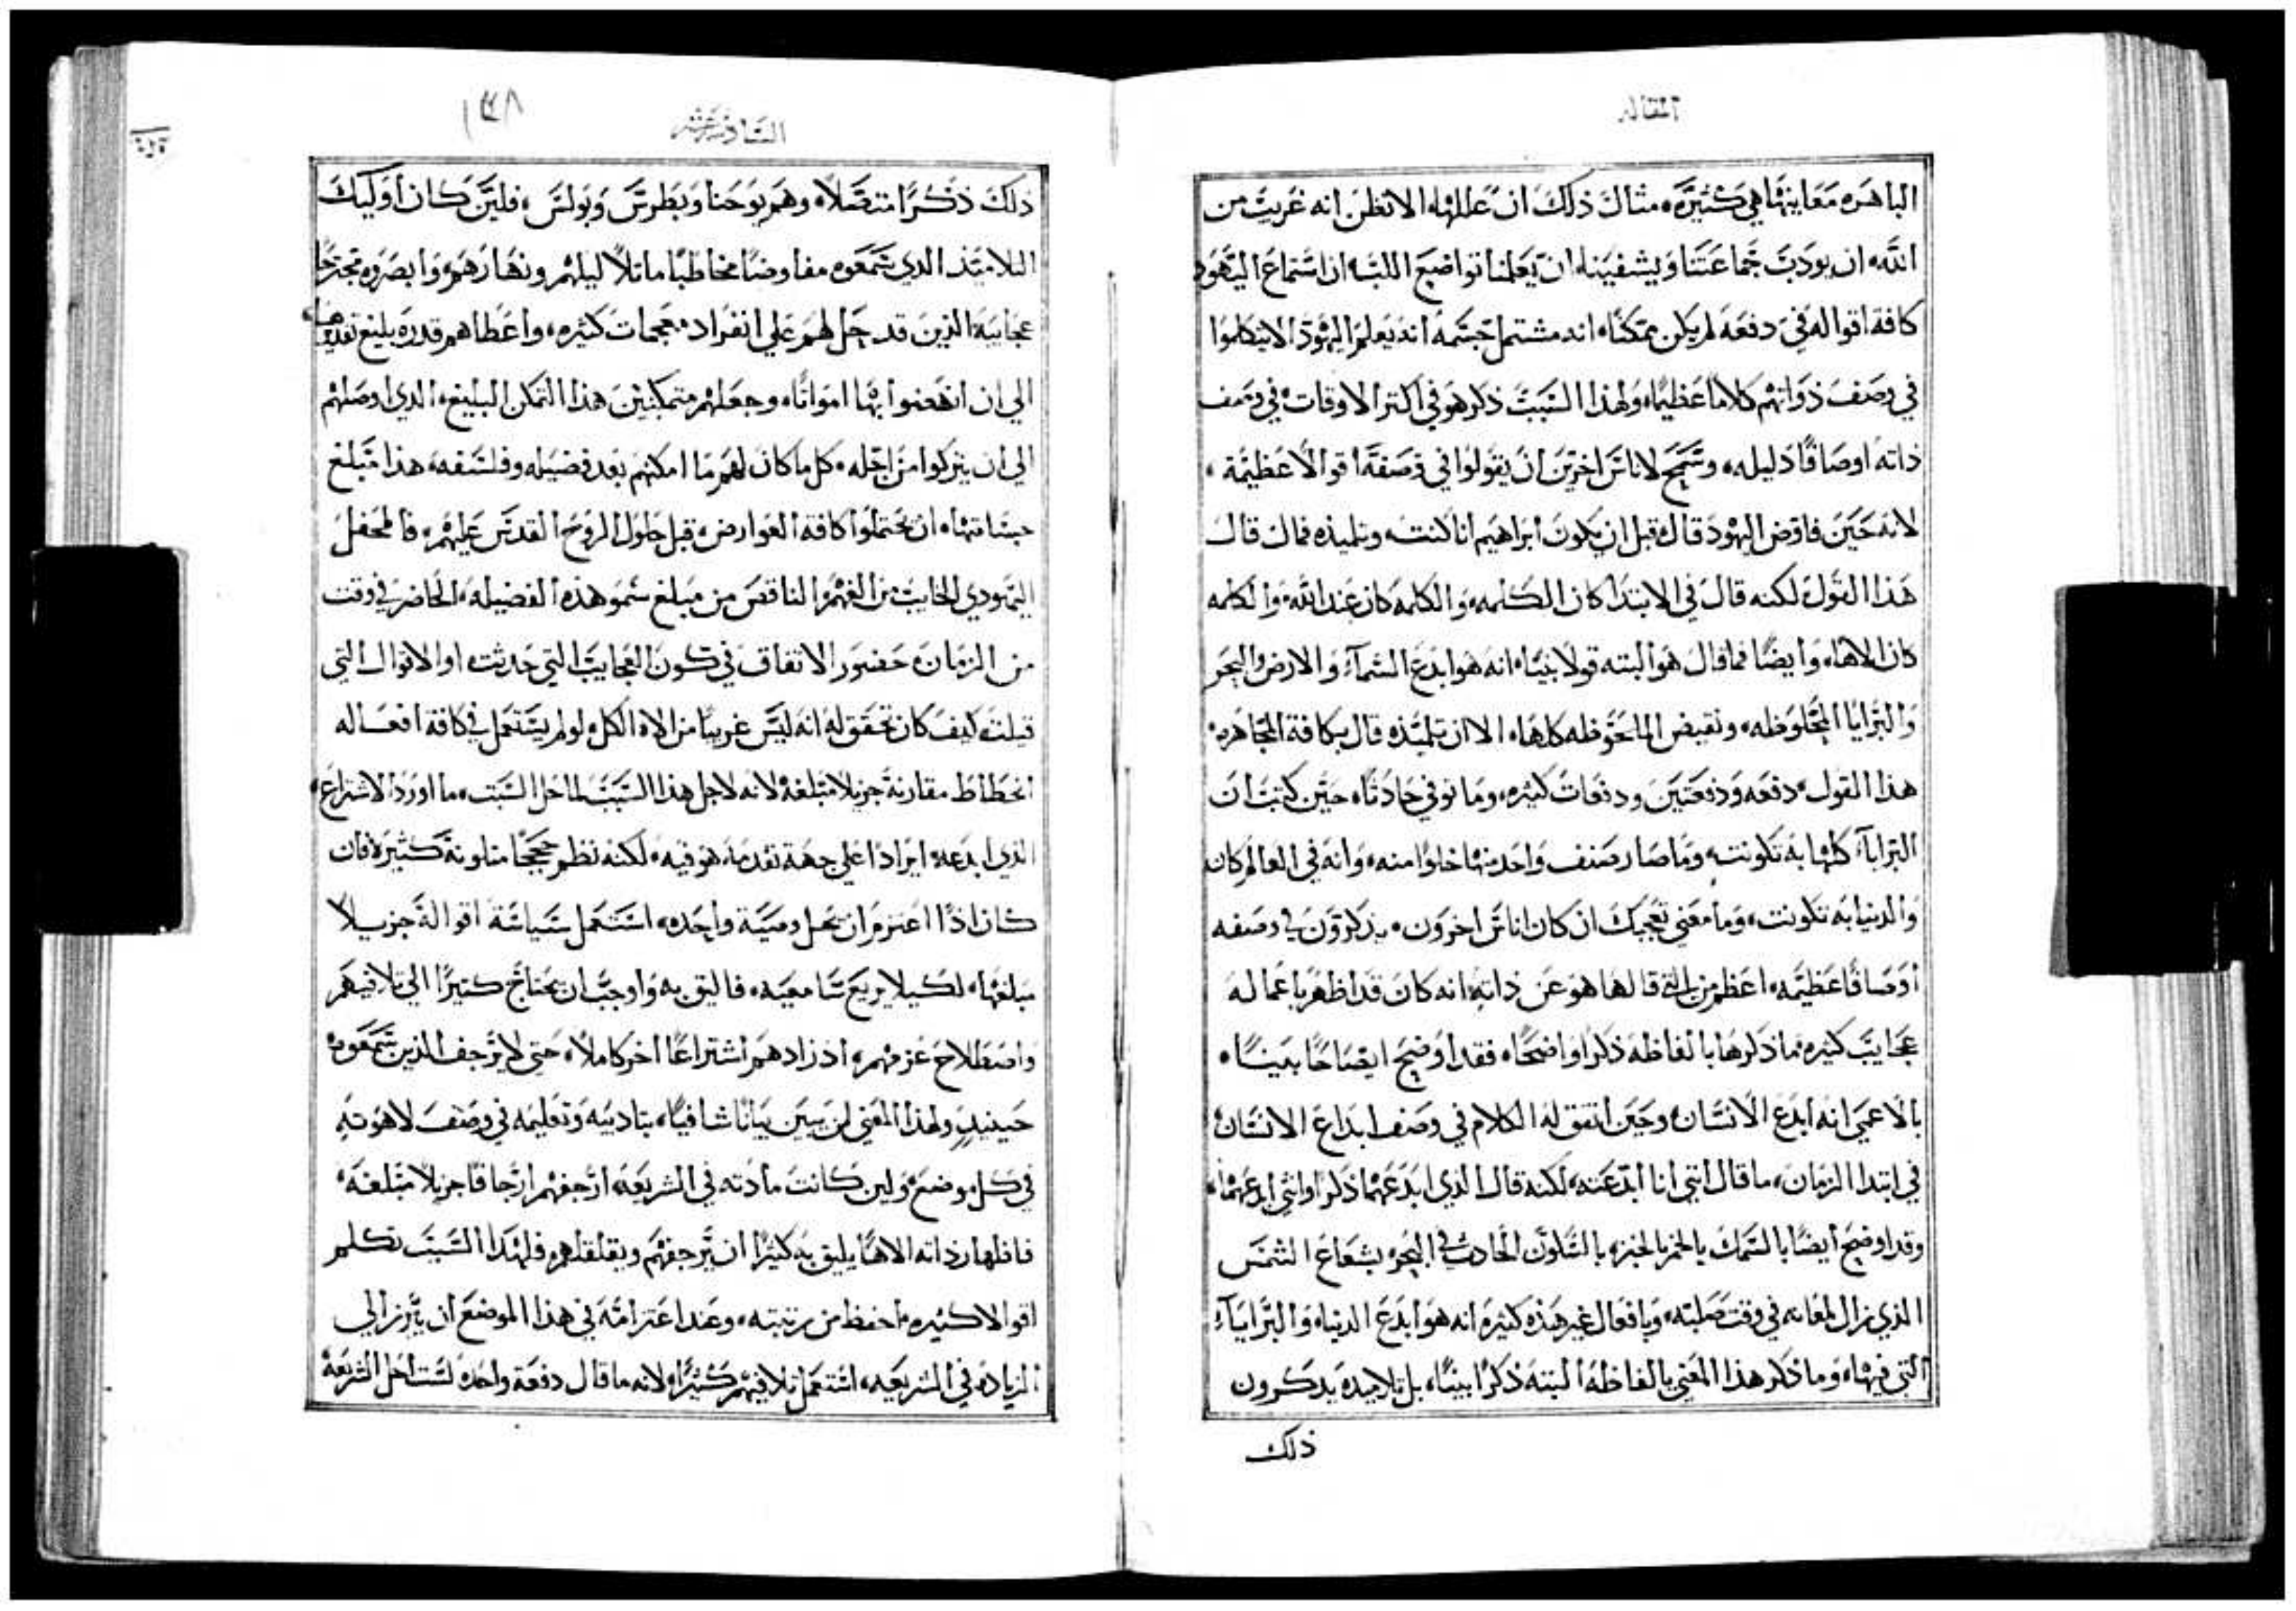 المقاله
الباهره معاينتها هي كثيره، مثال ذلك ان عللها، الا تظن انه غريب من
الله، ان يودب جماعتنا ويشفينا، ان يعلمنا تواضع اللب، ان استماع اليهود
كافة اقواله في دفعه لم يكن ممكنًا، انه مشتمل جسمه، انه يعلم اليهود الا يتكلموا
في وصف ذواتهم كلامًا عظيمًا، ولهذا السبب ذكر هو في اكتر الاوقات في وصف
ذاته اوصافًا ذليله، وسمح لاناس اخرين ان يقولوا في وصفه اقوالًا عظيمة،
لانه حين فاوض اليهود قال، قبل ان يكون ابراهيم انا كنت، وتلميذه فما قال
هذا القول لكنه قال في الابتدا كان الكلمه، والكلمه كان عند الله، والكلمه
كان الاهًا، وايضًا فما قال هو البته قولًا بينًا، انه هو ابدع السمآء والارض والبحر
والبرايا الملحوظه، ونقيض الملحوظه كلها، الا ان تلميذه قال بكافة المجاهره
هذا القول، دفعه ودفعتين ودفعات كثيره، وما نوفي حادثًا، حين كتب ان
البرايآ، كلها به تكونت، وما صار صنف واحد منها خلوًا منه، وانه في العالم كان
والدنيا به تكونت، وما معني تعجبك ان كان اناس اخرون، يذكرون في وصفه
اوصافًا عظيمه، اعظم من التي قالها هو عن ذاته، انه كان قد اظهر باعماله
عجايب كثيره، فما ذكرها بالفاظه ذكرًا واضحًا، فقد اوضح ايضاحًا بينًا،
بالاعمي انه ابدع الانسان، وحين اتفق له الكلام في وصف ابداع الانسان،
في ابتدا الزمان، ما قال انني انا ابدعته، لكنه قال الذي ابدعهما ذكرًا وانثي ابدعهما،
وقد اوضح ايضًا بالسمك بالخمر بالخبز، بالسكون الحادث في البحر، بشعاع الشمس
الذي زال لمعانه في وقت صلبه، وبافعال غير هذه كثيره انه هو ابدع الدنيا، والبرايآء
التي فيها، وما ذكر هذا المعني بالفاظه البته ذكرًا بينًا، بل تلاميذه يذكرون
ذلك
السادسه عشر
١٣٨
ذلك ذكرًا متصلًا، وهم يوحنا وبطرس وبولس، فلين كان اوليك
التلاميذ الذي سمعوه مفاوضًا مخاطبًا ماتلًا ليلهم ونهارهم، وابصروه مجترحًا
عجايبه، الذين قد حل لهم علي انفراد معجمات كثيره، واعطاهم قدرة بليغ تقديرها،
الي ان انهضوا بها امواتًا، وجعلهم متمكنين هذا التمكن البليغ، الذي اوصلهم
الي ان يتركوا من اجله، كل ما كان لهم، ما امكنهم بعد فضيله وفلسفه، هذا مبلغ
جسامتها، ان يحتملوا كافة العوارض، قبل حلول الروح القدس عليهم، فالمحفل
اليهودي الخايب من الفهم، الناقص من مبلغ سمو هذه الفضيله، الحاضر في وقت
من الزمان، حضور الاتفاق في كون العجايب التي حدثت، او الاقوال التي
قيلت، كيف كان تحقق له انه ليس غريبًا من الاه الكل، لو لم يستعمل في كافة افعاله
انحطاط مقارنة جزيلًا مبلغه، لانه لاجل هذا السبب لما حل السبت، ما اورد الاشتراع،
الذي ابدعه، ايرادًا علي جهة تقدمه، هو فيه، لكنه نظم حججًا متلونة كثيرة، فان
كان اذًا اعتزم ان يحل وصية واحده، استعمل سياسة اقواله جزيلًا
مبلغها، لكيلا يريع سامعيه، فاليق به، واوجب ان يحتاج كتيرًا الي تلافيهم
واصطلاح عزمهم، اذ زادهم اشتراعًا اخر كاملًا، حتي لا يرجف الذين سمعوه
حينيذ، ولهذا المعني لن يبين بيانًا شافيًا، بتاديبه وتعليمه في وصف لاهوته
في كل موضع، ولين كانت مادته في الشريعة ارجفهم ارجافًا جزيلًا مبلغه،
فاظهار ذاته الاهًا يليق به كثيرًا ان يرجفهم ويقلقلهم، فلهذا السبب تكلم
اقوالًا كثيره، احفظ من رتبته، وعند اعتزامه في هذا الموضع ان يبرز الي
الزياده في الشريعه، استعمل تلافيهم كثيرًا، لانه ما قال دفعة واحده لست احل الشريعة